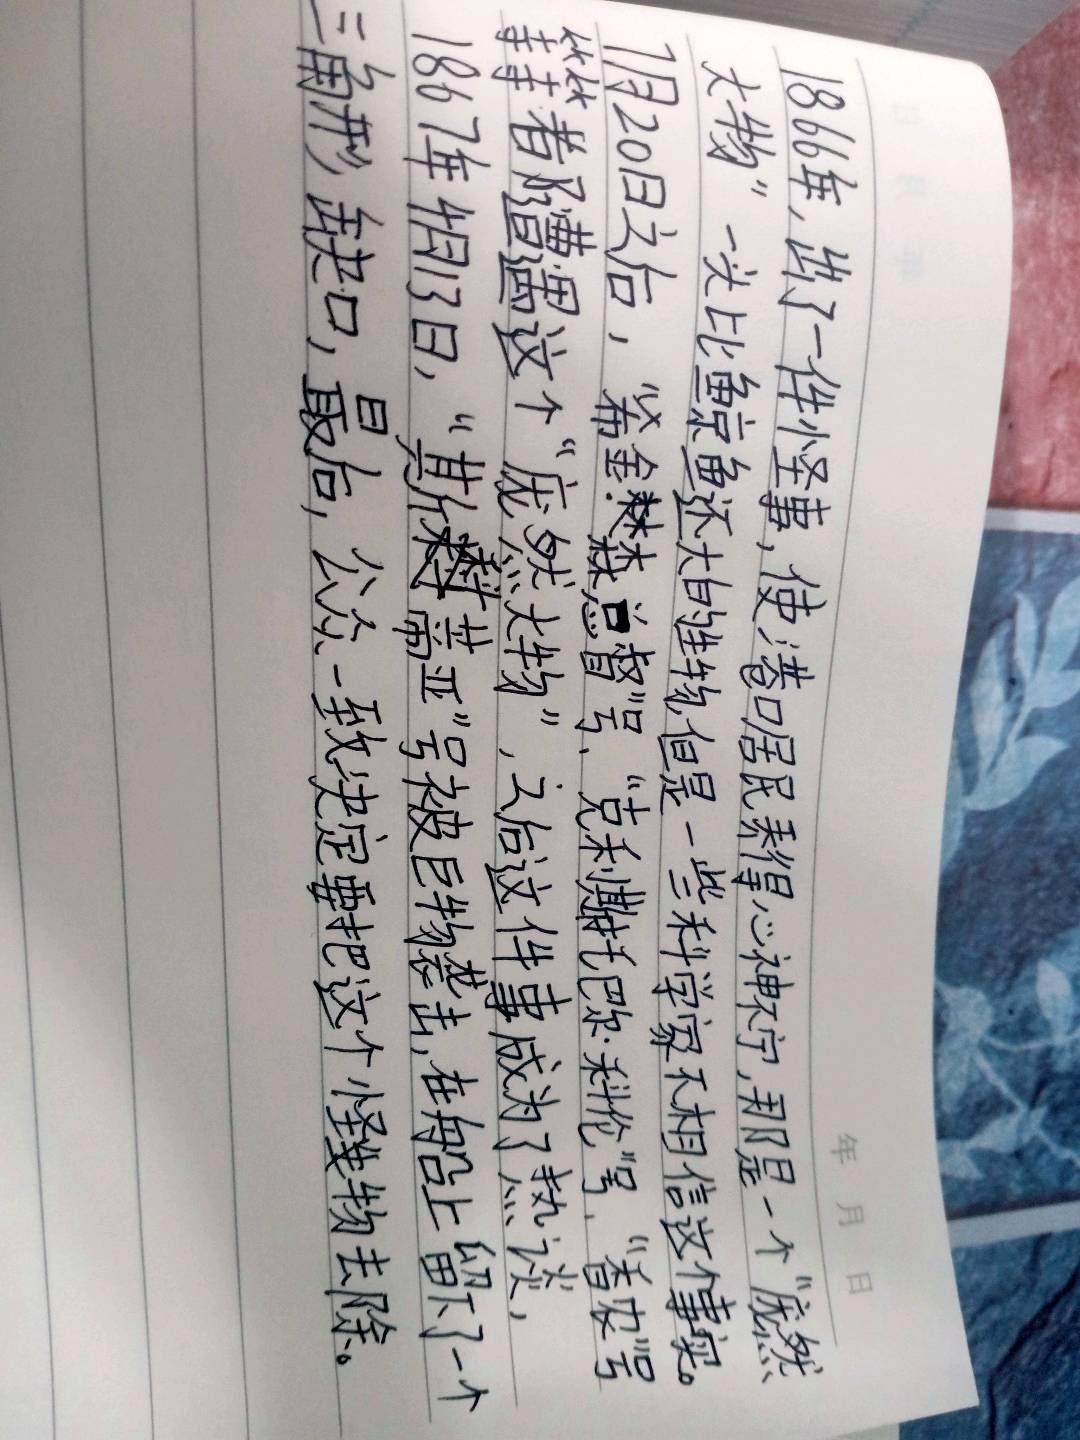 年 月 日
1866年,出了一件怪事,使港口居民弄得心神不宁,那是一个“庞然
大物”一头比鲸鱼还大的生物,但是一些科学家不相信这个事实。
7月20日之后,“布金森总督”号、“克利斯托巴尔·科伦”号、“香农”号
等等者陌遭遇这个“庞然大物”,之后这件事成为了热谈,
1867年4月13日,“其尔蒂亚”号被巨物袭击,在船上留下了一个
三角形缺口,最后,公众一致决定要把这个怪物去除。